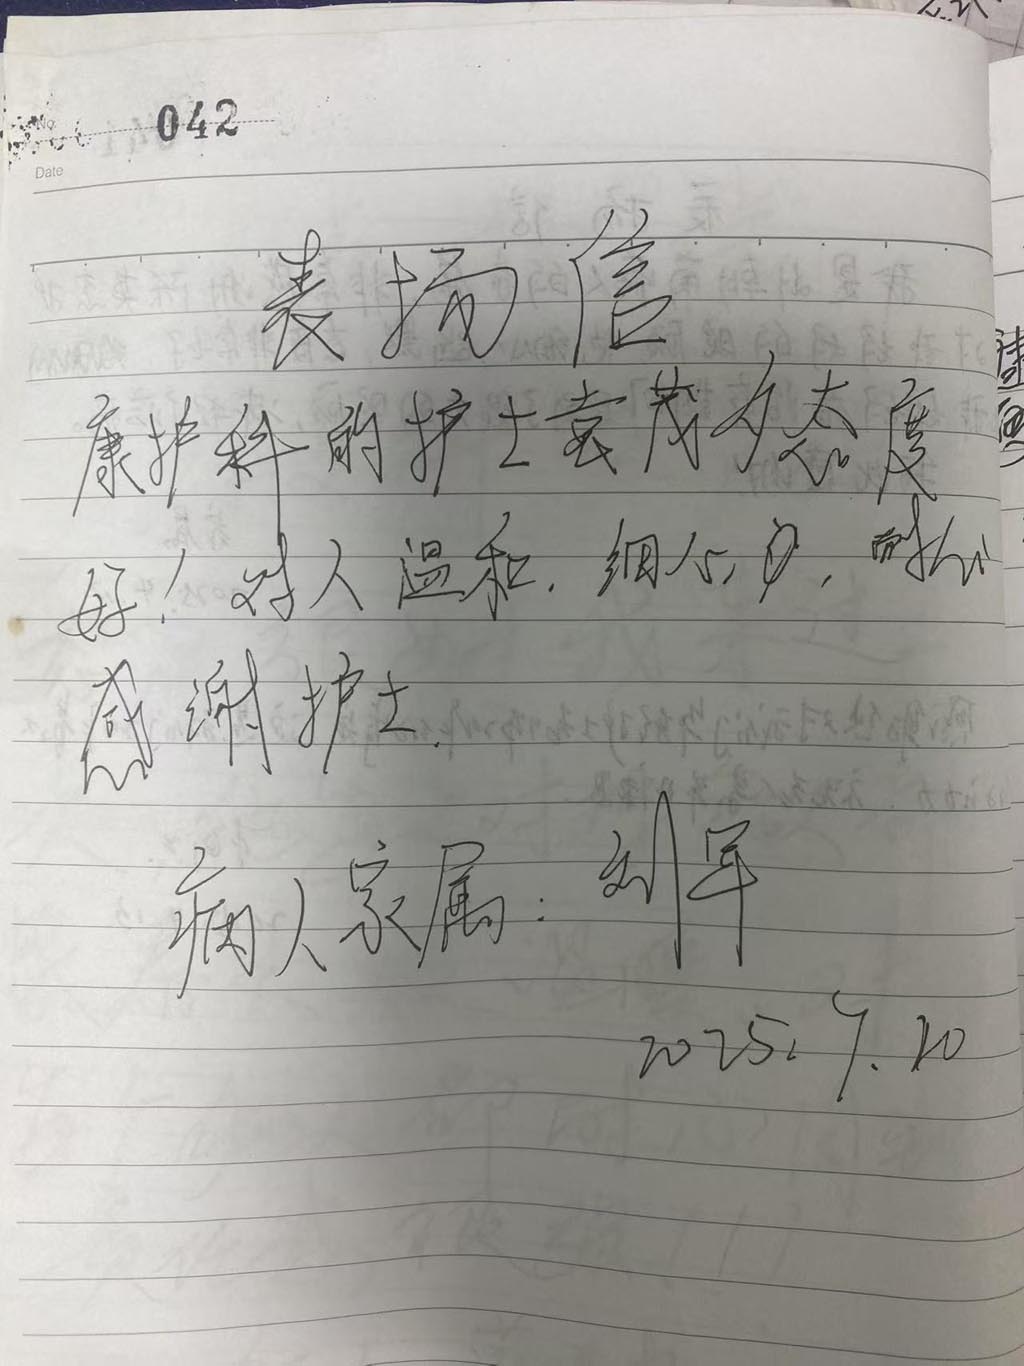 No.
042
Date
表扬信
康护科的护士袁茂多态度
好！对人温和，细心，耐心
感谢护士.
病人家属：刘军
2025.7.20